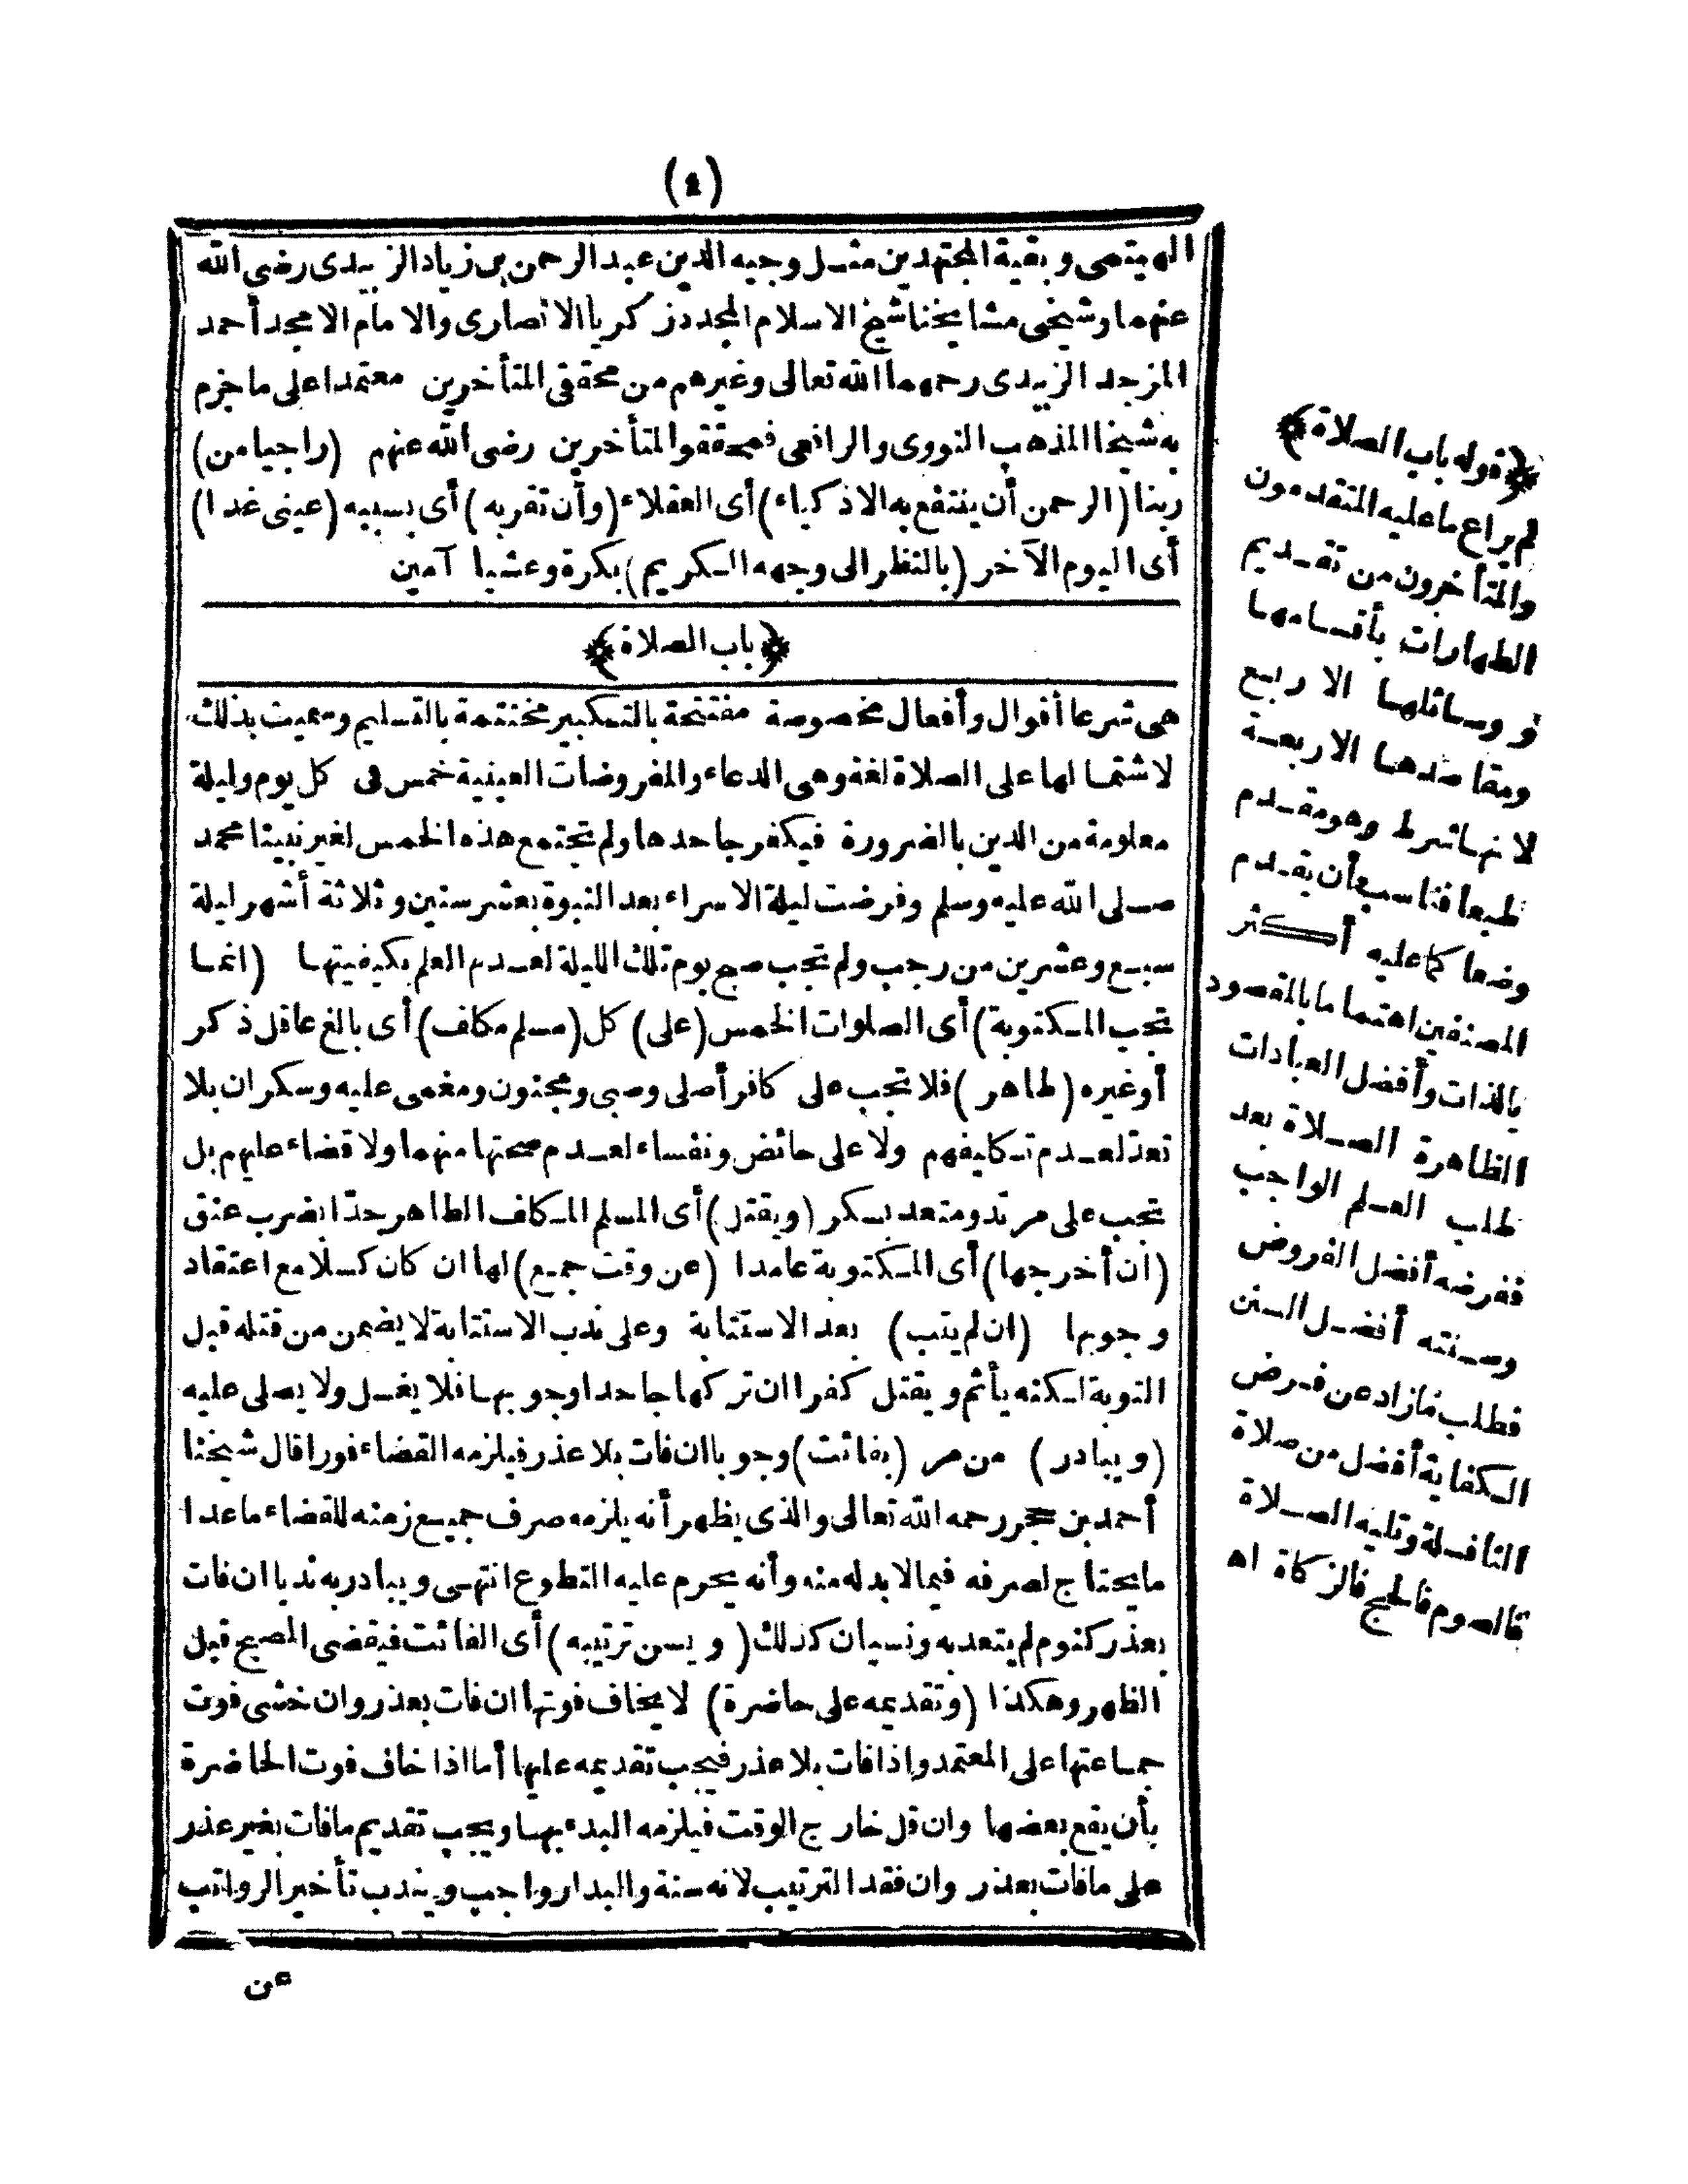 (٤)
الهيتمى وبقية المجتهدين مثل وجيه الدين عبد الرحمن بن زياد الزبيدى رضى الله
عنهما وشيخى مشايخنا شيخ الاسلام المجدد زكريا الانصارى والامام الامجد أحمد
المزجد الزبيدى رحمهما الله تعالى وغيرهم من محققى المتأخرين معتمدا على ما جزم
به شيخا المذهب النووى والرافعى فمحققو المتأخرين رضى الله عنهم (راجيا من)
ربنا (الرحمن أن ينتفع به الاذكياء) أى العقلاء (وأن تقر به) أى بسببه (عينى غدا)
أى اليوم الآخر (بالنظر الى وجهه الكريم) بكرة وعشيا آمين
﴿باب الصلاة﴾
هى شرعا أقوال وأفعال مخصوصة مفتتحة بالتكبير مختتمة بالتسليم وسميت بذلك
لاشتمالها على الصلاة لغة وهى الدعاء والمفروضات العينية خمس فى كل يوم وليلة
معلومة من الدين بالضرورة فيكفر جاحدها ولم تجتمع هذه الخمس لغير نبينا محمد
صلى الله عليه وسلم وفرضت ليلة الاسراء بعد النبوة بعشر سنين وثلاثة أشهر ليلة
سبع وعشرين من رجب ولم تجب صبح يوم تلك الليلة لعدم العلم بكيفيتها (انما
تجب المكتوبة) أى الصلوات الخمس (على) كل (مسلم مكلف) أى بالغ عاقل ذكر
أو غيره (طاهر) فلا تجب على كافر أصلى وصبى ومجنون ومغمى عليه وسكران بلا
تعد لعدم تكليفهم ولا على حائض ونفساء لعدم صحتها منهما ولا قضاء عليهم بل
تجب على مرتد ومتعد بسكر (ويقتل) أى المسلم المكلف الطاهر حدا بضرب عنق
(ان أخرجها) أى المكتوبة عامدا (عن وقت جمع) لها ان كان كسلا مع اعتقاد
وجوبها (ان لم يتب) بعد الاستتابة وعلى ندب الاستتابة لا يضمن من قتله قبل
التوبة لكنه يأثم ويقتل كفرا ان تركها جاحدا وجوبها فلا يغسل ولا يصلى عليه
(ويبادر) من مر (بفائت) وجوبا ان فات بلا عذر فيلزمه القضاء فورا قال شيخنا
أحمد بن حجر رحمه الله تعالى والذى يظهر أنه يلزمه صرف جميع زمنه للقضاء ما عدا
ما يحتاج لصرفه فيما لا بد له منه وأنه يحرم عليه التطوع انتهى ويبادر به ندبا ان فات
بعذر كنوم لم يتعد به ونسيان كذلك (ويسن ترتيبه) أى الفائت فيقضى الصبح قبل
الظهر وهكذا (وتقديمه على حاضرة) لا يخاف فوتها ان فات بعذر وان خشى فوت
جماعتها على المعتمد واذا فات بلا عذر فيجب تقديمه عليها أما اذا خاف فوت الحاضرة
بأن يقع بعضها وان قل خارج الوقت فيلزمه البدء بها ويجب تقديم ما فات بغير عذر
على ما فات بعذر وان فقد الترتيب لانه سنة والبدار واجب ويندب تأخير الرواتب
عن
﴿قوله باب الصلاة﴾
لم يراع ما عليه المتقدمون
والمتأخرون من تقديم
الطهارات بأقسامها
ووسائلها الاربع
ومقاصدها الاربعة
لانها شرط وهو مقدم
طبعا فناسب أن يقدم
وضعا كما عليه أكثر
المصنفين اهتماما بالمقصود
بالذات وأفضل العبادات
الظاهرة الصلاة بعد
طلب العلم الواجب
ففرضه أفضل الفروض
وسنته أفضل السنن
فطلب ما زاد عن فرض
الكفاية أفضل من صلاة
النافلة وتليه الصلاة
فالصوم فالحج فالزكاة اه